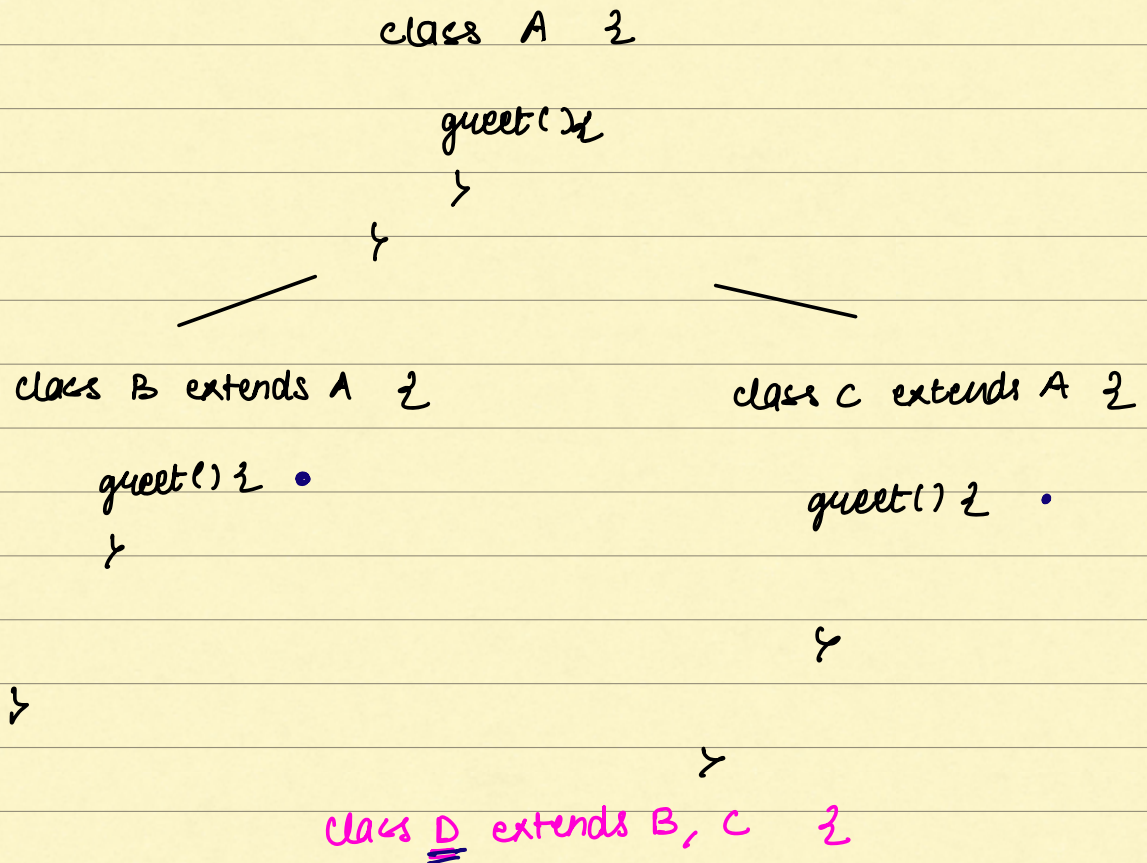 class A {
greet() {
}
}
class B extends A {
class C extends A {
greet() {
greet() {
}
}
}
}
class D extends B, C {